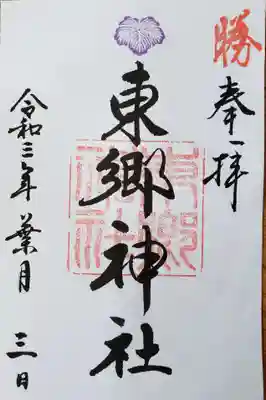 勝
奉拝
東郷神社
東郷神社
令和三年葉月三日